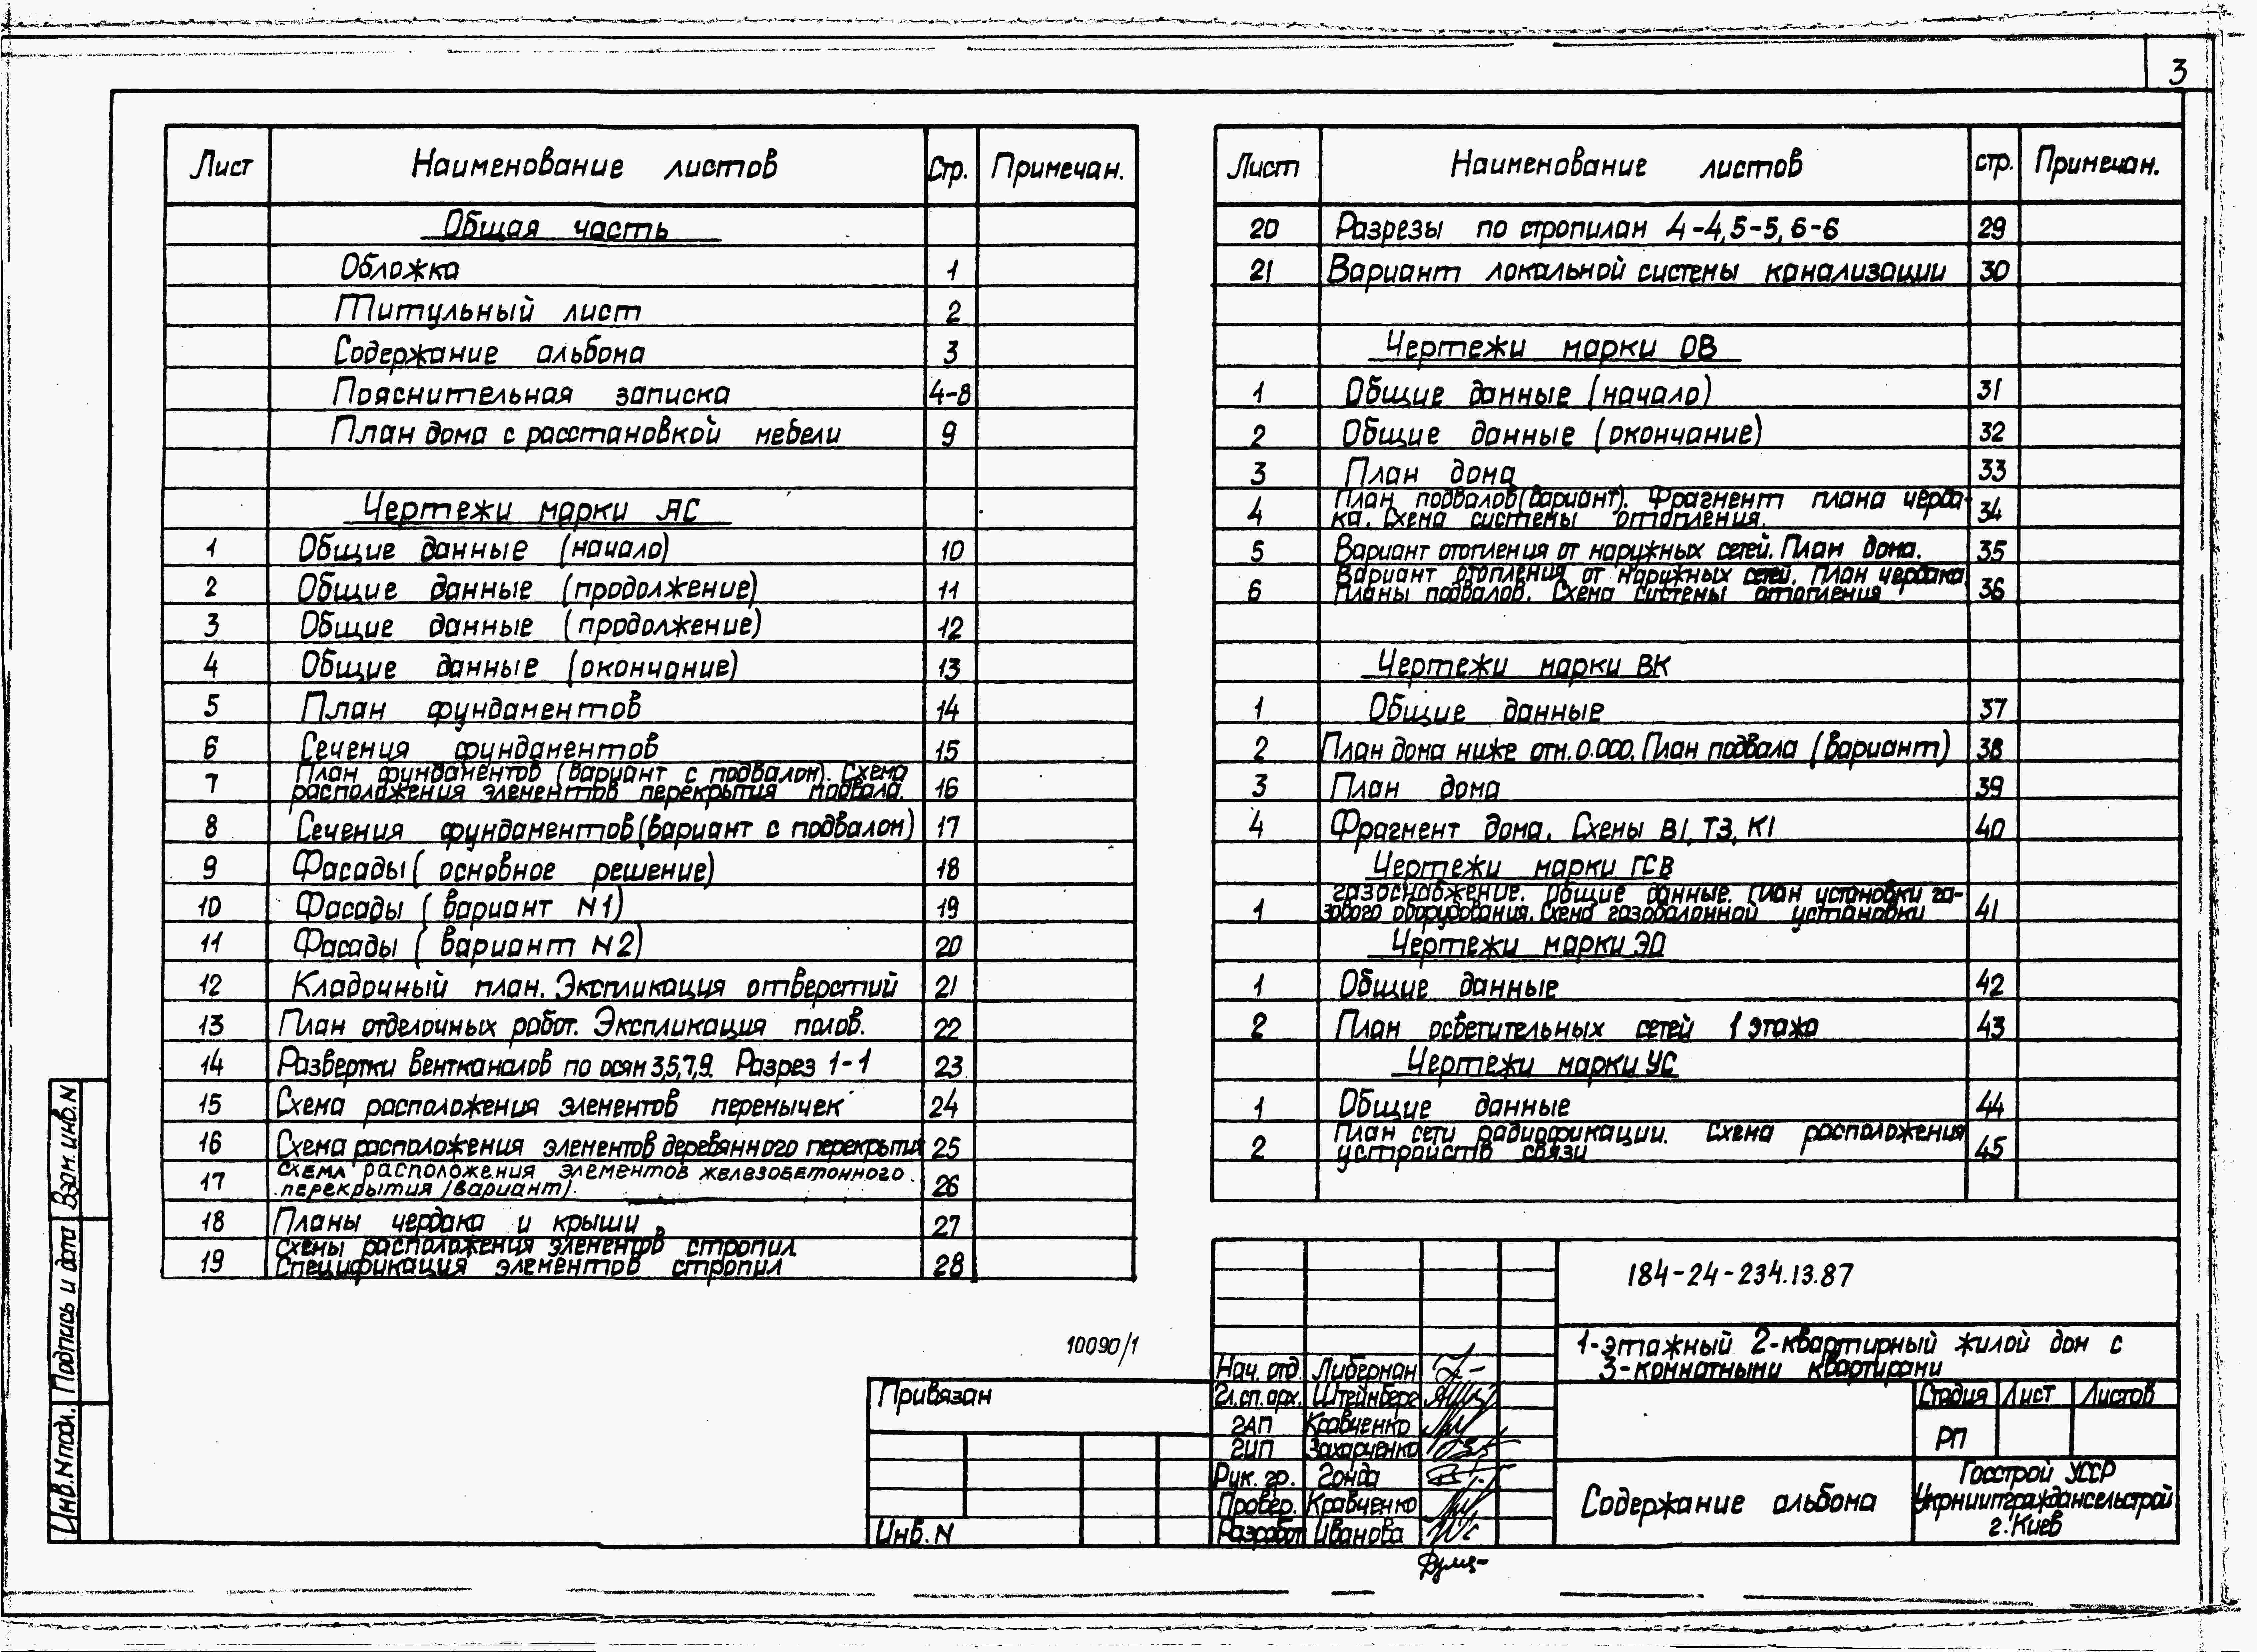 3
Лист Наименование листов Стр. Примечан.
Общая часть
Обложка 1
Титульный лист 2
Содержание альбома 3
Пояснительная записка 4-8
План дома с расстановкой мебели 9
Чертежи марки АС
1 Общие данные (начало) 10
2 Общие данные (продолжение) 11
3 Общие данные (продолжение) 12
4 Общие данные (окончание) 13
5 План фундаментов 14
6 Сечения фундаментов 15
7 План фундаментов (вариант с подвалом). Схема
расположения элементов перекрытия подвала. 16
8 Сечения фундаментов (вариант с подвалом) 17
9 Фасады (основное решение) 18
10 Фасады (вариант N1) 19
11 Фасады (вариант N2) 20
12 Кладочный план. Экспликация отверстий 21
13 План отделочных работ. Экспликация полов. 22
14 Развертки вентканалов по осям 3,5,7,9. Разрез 1-1 23
15 Схема расположения элементов перемычек 24
16 Схема расположения элементов деревянного перекрытия 25
17 Схема расположения элементов железобетонного
перекрытия (вариант). 26
18 Планы чердака и крыши 27
19 Схемы расположения элементов стропил
Спецификация элементов стропил 28
Лист Наименование листов стр. Примечан.
20 Разрезы по стропилам 4-4, 5-5, 6-6 29
21 Вариант локальной системы канализации 30
Чертежи марки ОВ
1 Общие данные (начало) 31
2 Общие данные (окончание) 32
3 План дома 33
4 План подвалов (вариант). Фрагмент плана черда-
ка. Схема системы отопления. 34
5 Вариант отопления от наружных сетей. План дома. 35
6 Вариант отопления от наружных сетей. План чердака.
Планы подвалов. Схема системы отопления 36
Чертежи марки ВК
1 Общие данные 37
2 План дома ниже отм. 0.000. План подвала (вариант) 38
3 План дома 39
4 Фрагмент дома. Схемы В1, Т3, К1 40
Чертежи марки ГСВ
1 Газоснабжение. Общие данные. План установки га-
зового оборудования. Схема газобалонной установки 41
Чертежи марки ЭО
1 Общие данные 42
2 План осветительных сетей 1 этажа 43
Чертежи марки УС
1 Общие данные 44
2 План сети радиофикации. Схема расположения
устройств связи 45
Взам. инв. N
Подпись и дата
Инв. N подл.
10090/1
Привязан
Инв. N
Нач. отд. Либерман
Гл. сп. арх. Штейнберг
ГАП Кравченко
ГИП Захарченко
Рук. гр. Гонда
Провер. Кравченко
Разработ Иванова
184-24-234.13.87
1-этажный 2-квартирный жилой дом с
3-комнатными квартирами
Стадия Лист Листов
РП
Содержание альбома
Госстрой УССР
Укрниипграждансельстрой
г. Киев